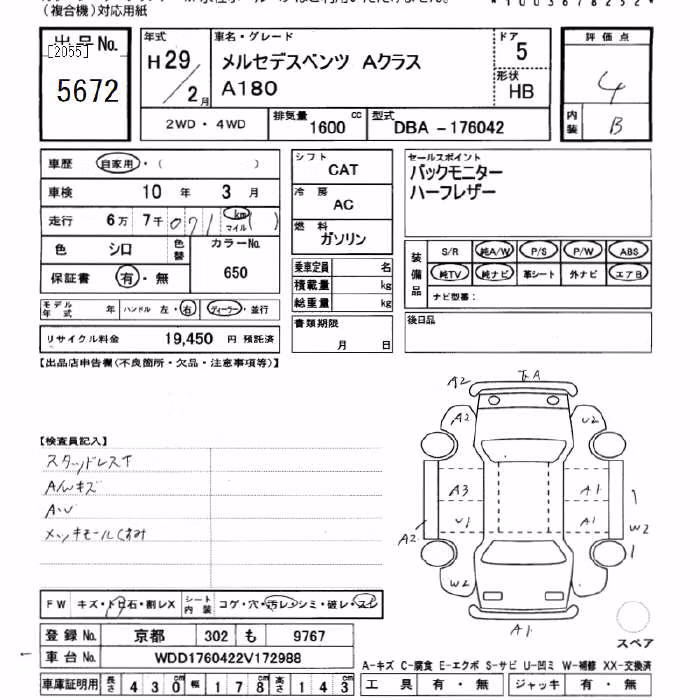 (複合機)対応用紙
出品No.
[2055]
5672
年式
H 29 / 2 月
車名・グレード
メルセデスベンツ Aクラス
A180
ドア
5
形状
HB
評価点
4
内装
B
2WD・4WD
排気量
1600 cc
型式
DBA -176042
車歴 自家用・( )
車検 10 年 3 月
走行 6万 7千 071 km マイル ( )
色 シロ 色替
カラーNo.
650
保証書 有・無
モデル年式 年 ハンドル 左・右 ディーラー・並行
リサイクル料金 19,450 円 預託済
シフト
CAT
冷房
AC
燃料
ガソリン
乗車定員 名
積載量 kg
総重量 kg
書類期限
月 日
セールスポイント
バックモニター
ハーフレザー
装備品
S/R 純A/W P/S P/W ABS
純TV 純ナビ 革シート 外ナビ エアB
ナビ型番:
後日品
【出品店申告欄(不良箇所・欠品・注意事項等)】
【検査員記入】
スタッドレスT
A/Wキズ
A・U
メッキモールくすみ
A2
A2
U2
A3
A1
U1
A1
A2
W2
W2
A1
スペア
FW キズ・トビ石・割レX
シート内装 コゲ・穴・汚レ・シミ・破レ・スレ
登録No. 京都 302 も 9767
車台No. WDD1760422V172988
車庫証明用 長さ 430 cm 幅 178 cm 高さ 143 cm
A-キズ C-腐食 E-エクボ S-サビ U-凹ミ W-補修 XX-交換済
工具 有・無 ジャッキ 有・無